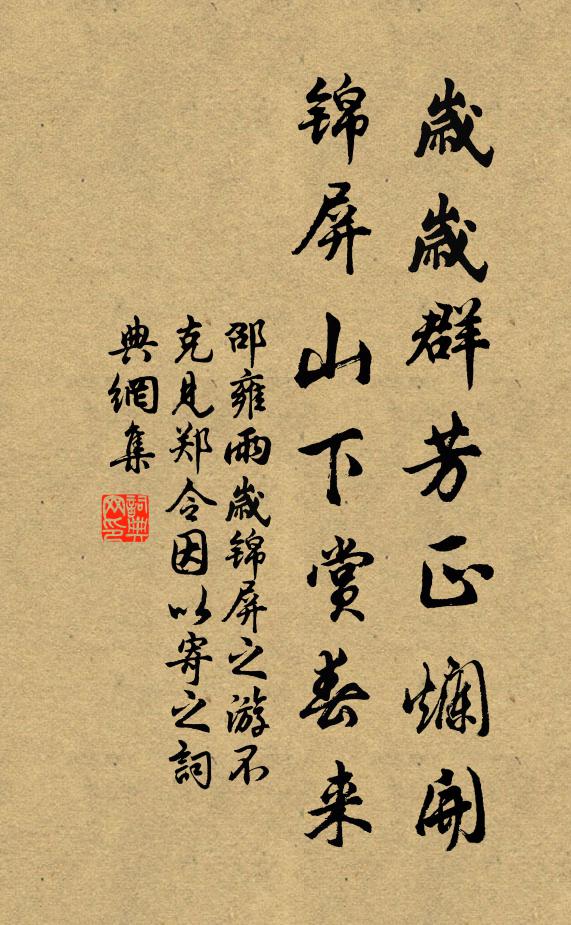 歲歲群芳正爛開
锦屏山下赏春来
邵雍雨歲锦屏之游不
克見郑令因以寄之詞
典網集
詞典网印